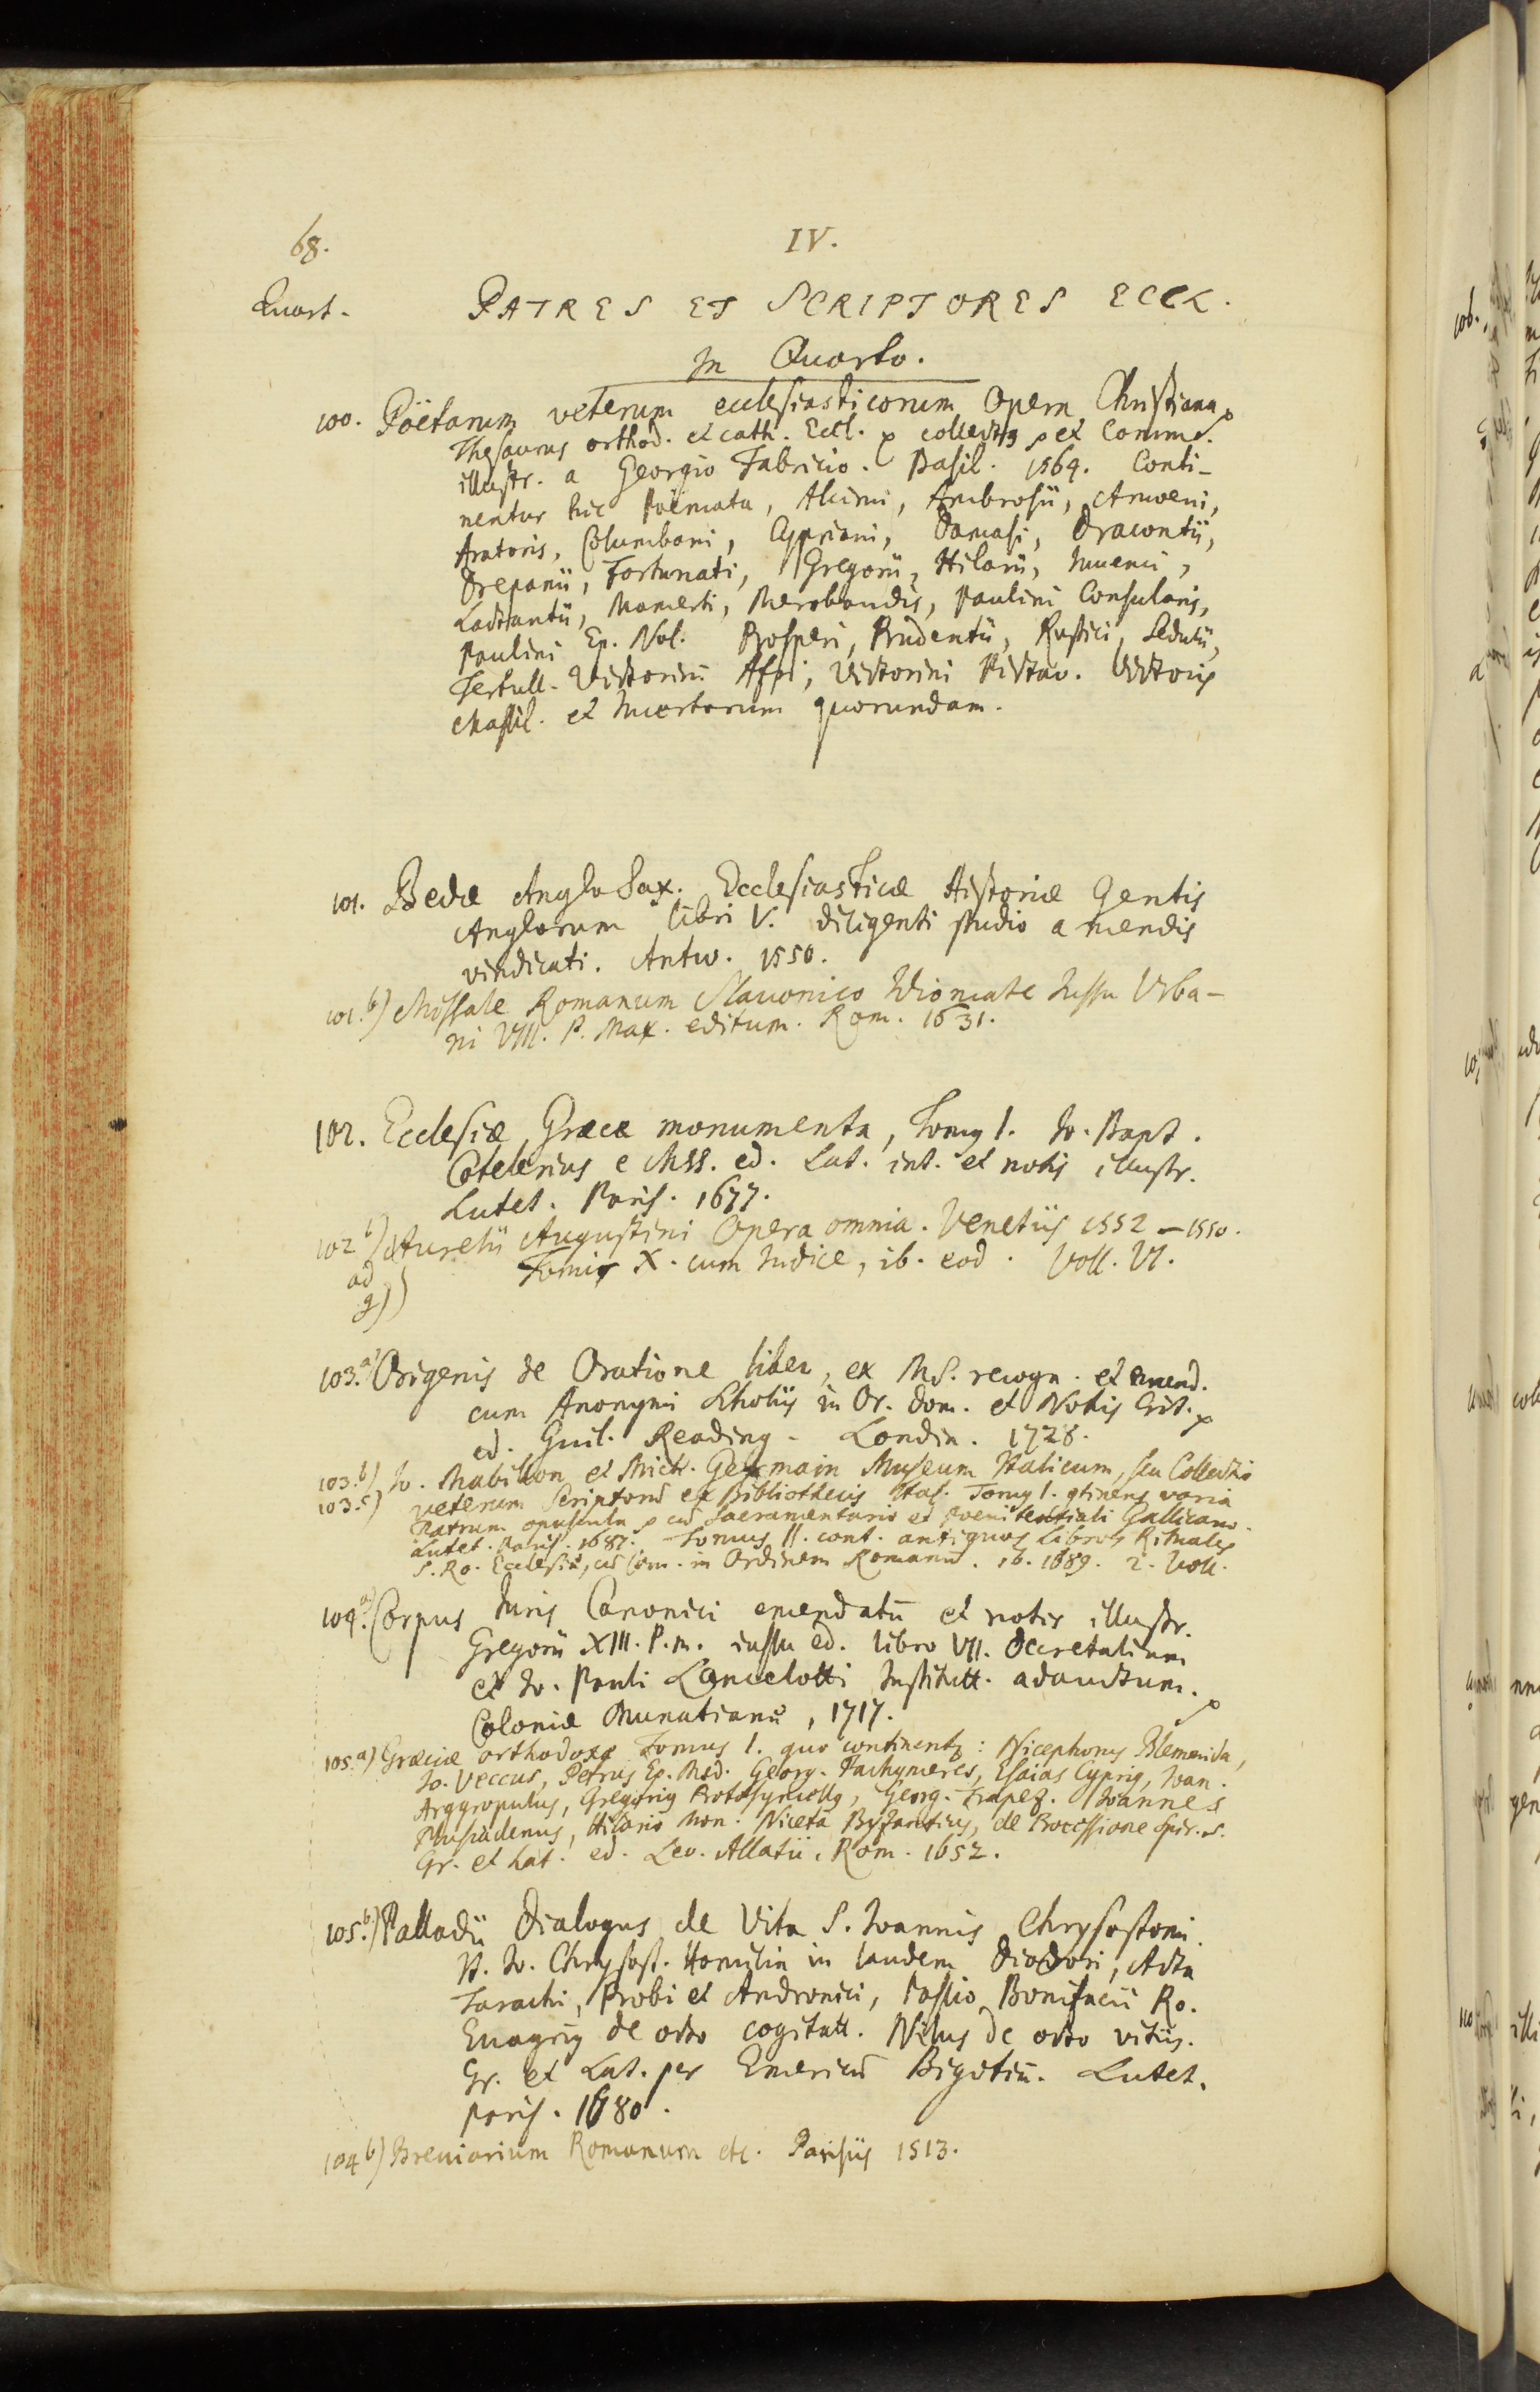 68.
IV.
Quart.
PATRES ET SCRIPTORES ECCL.
In Quarto.
100. Poëtarum veterum ecclesiasticorum Opera Christiana
Thesaurus orthod. et cath. Eccl. collectus et Comm.
illustr. a Georgio Fabricio. Basil. 1564. Conti-
nentur hic Poëmata, Alcimi, Ambrosii, Amoeni,
Aratoris, Columbani, Cypriani, Damasi, Dracontii,
Drepanii, Fortunati, Gregorii, Hilarii, Iuuenci,
Lactantii, Mamerti, Merobaudis, Paulini Consularis,
Paulini Ep. Nol. Prosperi, Prudentii, Rustici, Sedulii,
Tertull. Victorini Afri, Victorini Pictav. Victoris
Massil. et Incertorum quorundam.
101. Bedæ Anglo Sax. Ecclesiasticæ Historiæ Gentis
Anglorum libri V. diligenti studio a mendis
vindicati. Antw. 1550.
101.b) Missale Romanum Slauonico Idiomate Iussu Vrba-
ni VIII. P. Max. editum. Rom. 1631.
102. Ecclesiæ Græcæ monumenta, Tomus I. Io. Bapt.
Cotelerius e MSS. ed. Lat. int. et notis illustr.
Lutet. Paris. 1677.
102 b) Aurelii Augustini Opera omnia. Venetiis 1552 – 1550.
ad Tomis X. cum Indice, ib. eod. Voll. VI.
g)
103.a) Origenis de Oratione liber, ex MS. recogn. et emend.
cum Anonymi Scholiis in Or. Dom. et Notis Crit.
ed. Guil. Reading. Londin. 1728.
103.b) Io. Mabillon et Mich. Germain Museum Italicum, seu Collectio
103.c) veterum Scriptorū ex Bibliothecis Ital. Tomus I. gtinens varia
Patrum opuscula cū Sacramentario et poenitentiali Gallicano.
Lutet. Paris. 1687. – Tomus II. cont. antiquos Libros Rituales
S. Ro. Ecclesiæ, cū Com. in Ordinem Romanū. ib. 1689. 2. Voll.
104.a) Corpus Iuris Canonici emendatū et notis illustr.
Gregorii XIII. P. m. iussu ed. libro VII. Decretalium
et Io. Pauli Lancelotti Institutt. adauctum.
Coloniæ Munatianæ, 1717.
105.a) Græciæ orthodoxæ Tomus I. quo continentur: Nicephorus Blemmida,
Io. Veccus, Petrus Ep. Med. Georg. Pachymeres, Esaias Cyprius, Ioan.
Argyropulus, Gregorius Protosyncellus, Georg. Trapez. Ioannes
Plusiadenus, Hilario Mon. Niceta Byzantius, de Processione Spir. S.
Gr. et Lat. ed. Leo. Allatii. Rom. 1652.
105.b) Palladii Dialogus de Vita S. Ioannis Chrysostomi.
It. Io. Chrysost. Homilia in laudem Diodori, Acta
Tarachi, Probi et Andronici, Passio Bonifacii Ro.
Euagrius de octo cogitatt. Nilus de octo vitiis.
Gr. et Lat. per Emericū Bigotiū. Lutet.
Paris. 1680.
104 b) Breuiarium Romanum etc. Parisiis 1513.